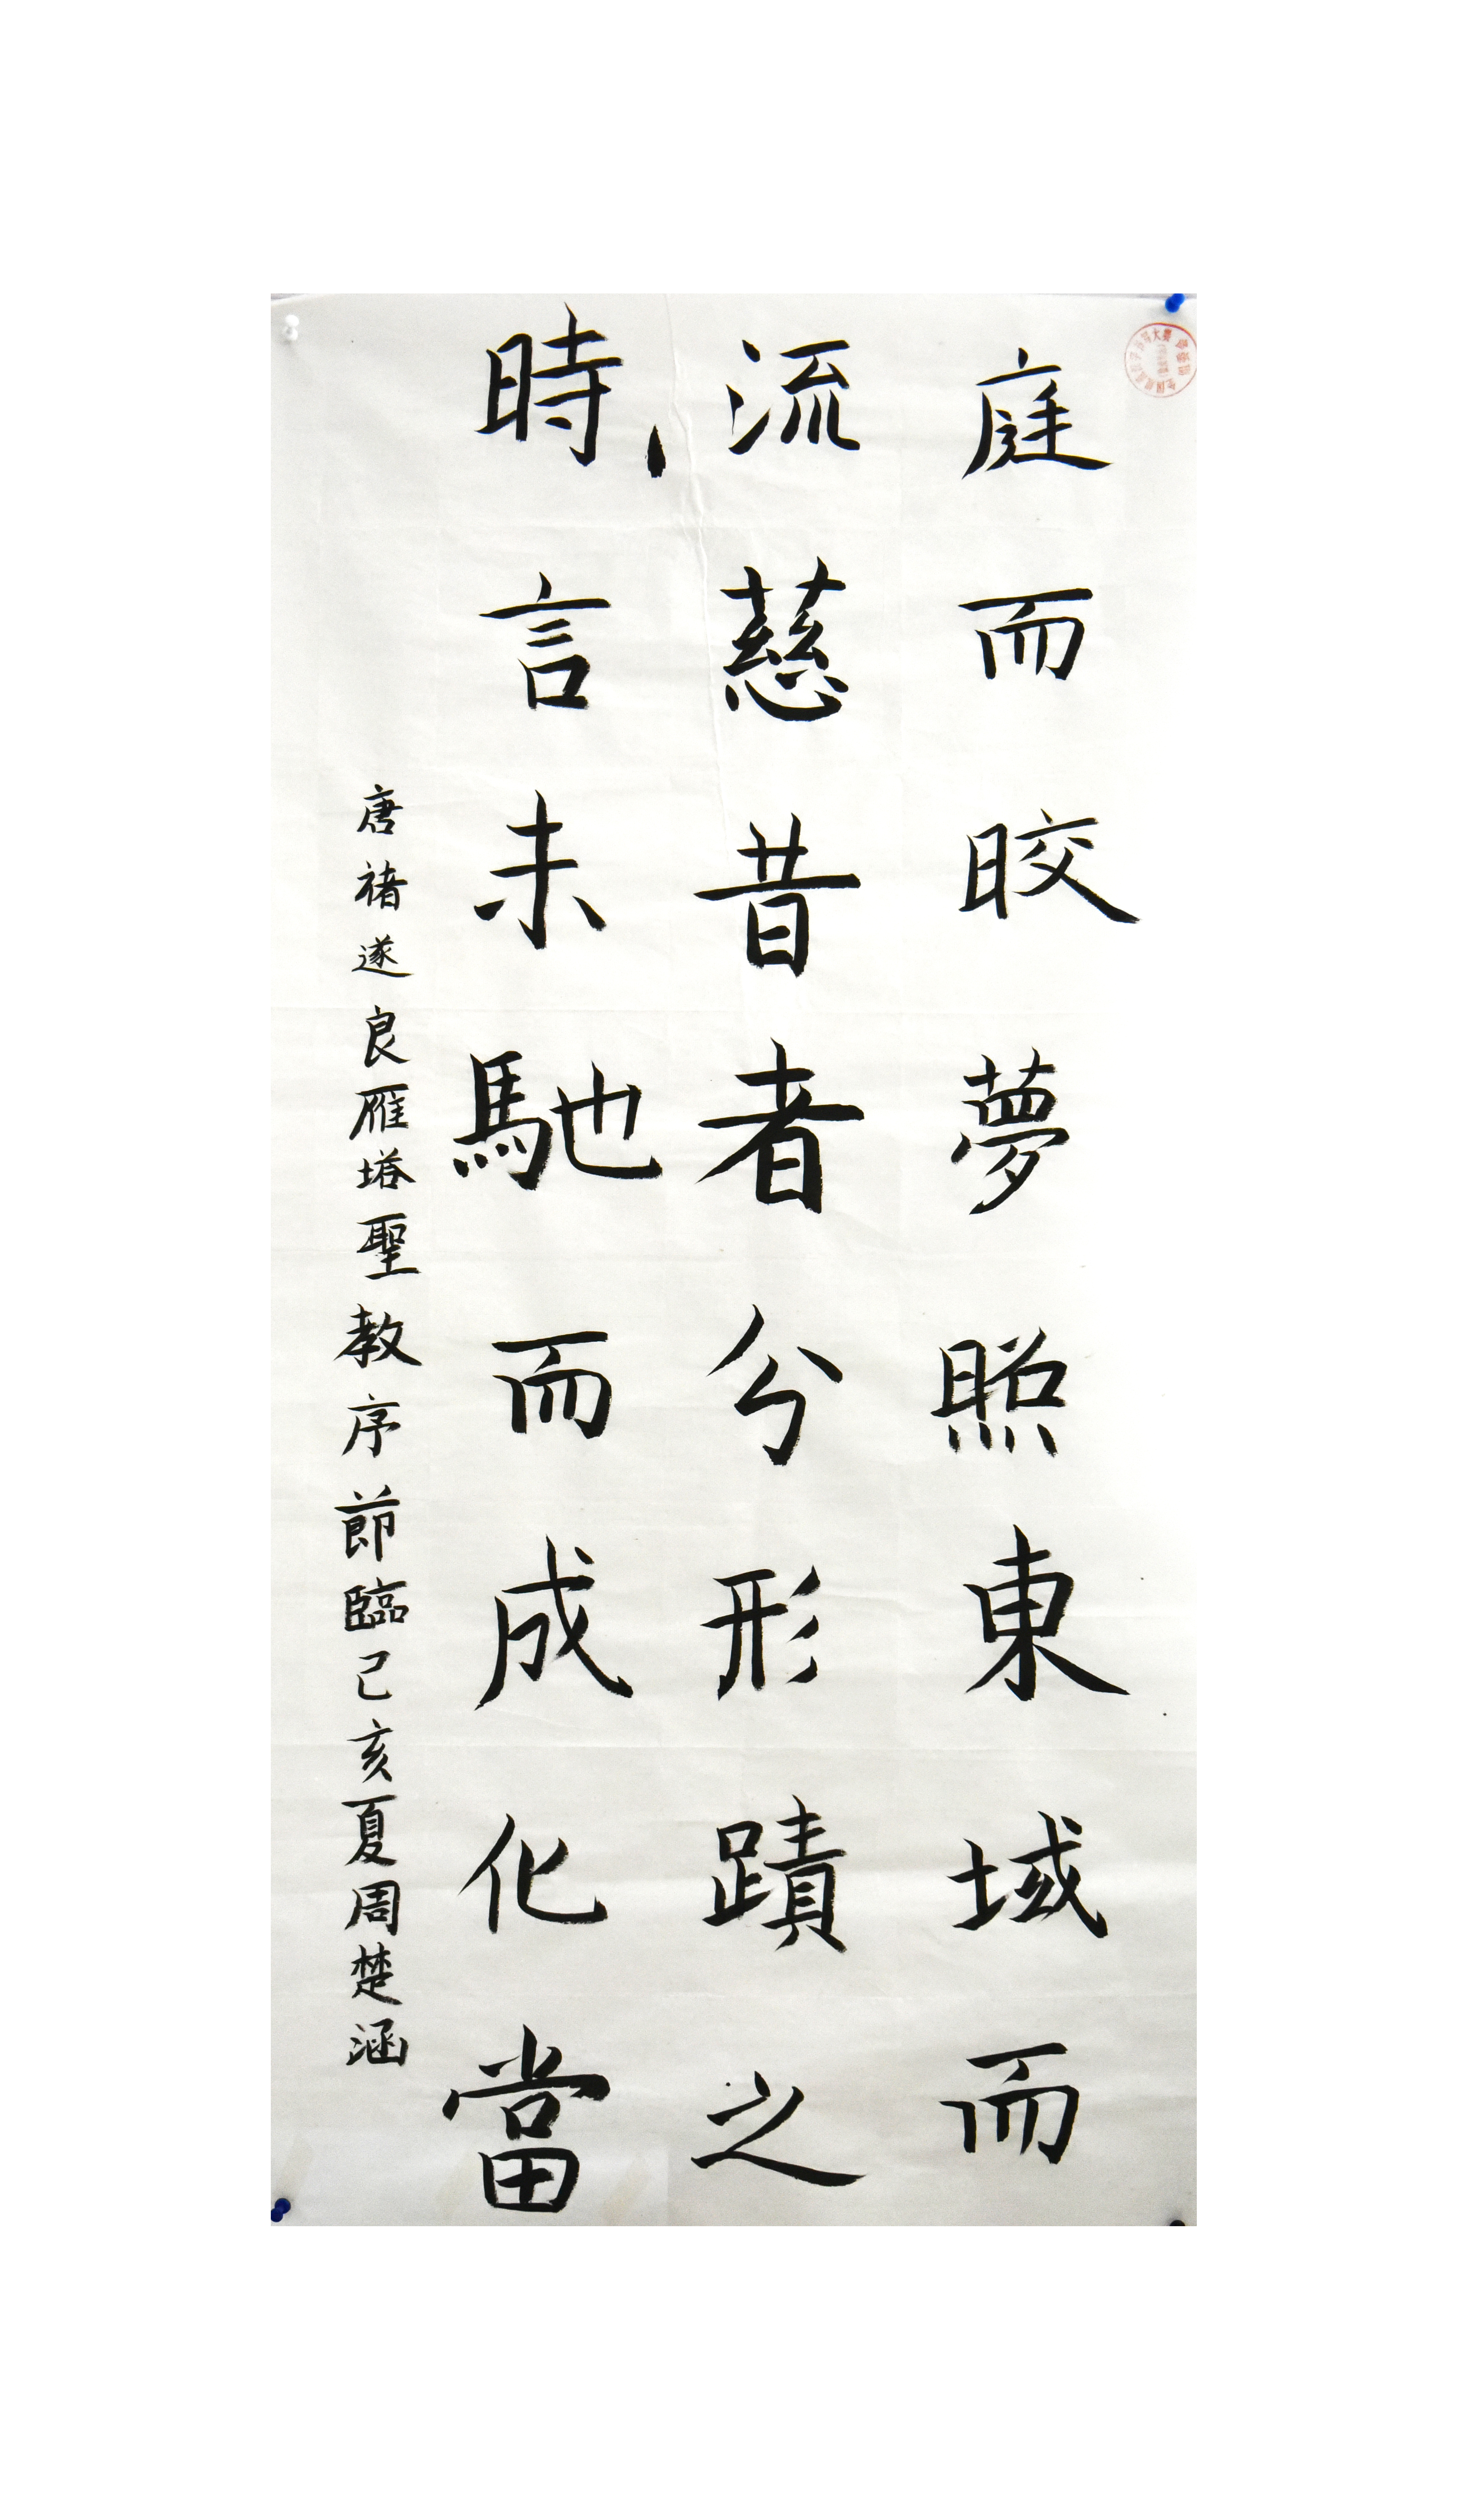 庭而晈夢照東域而
流慈昔者分形蹟之
時言未馳而成化當
唐褚遂良雁塔聖教序節臨己亥夏周楚涵